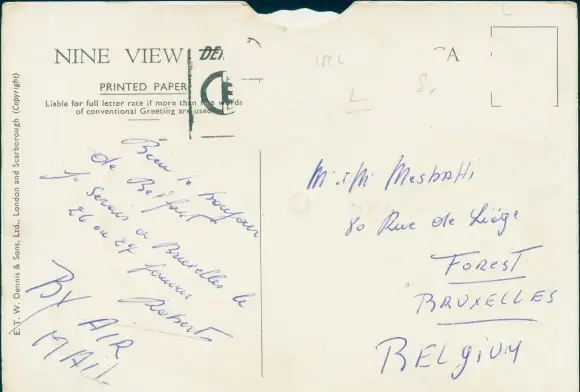 NINE VIEW
PRINTED PAPER
Liable for full letter rate if more than five words
of conventional Greeting are used.
E. T. W. Dennis & Sons, Ltd., London and Scarborough (Copyright)
IRL
A
L
8,
Bien le bonjour
de Belfast
Je serais a Bruxelles le
26 ou 27 janvier
Robert
BY AIR
MAIL
M. et M
80 Rue de Liége
FOREST
BRUXELLES
BELGIUM